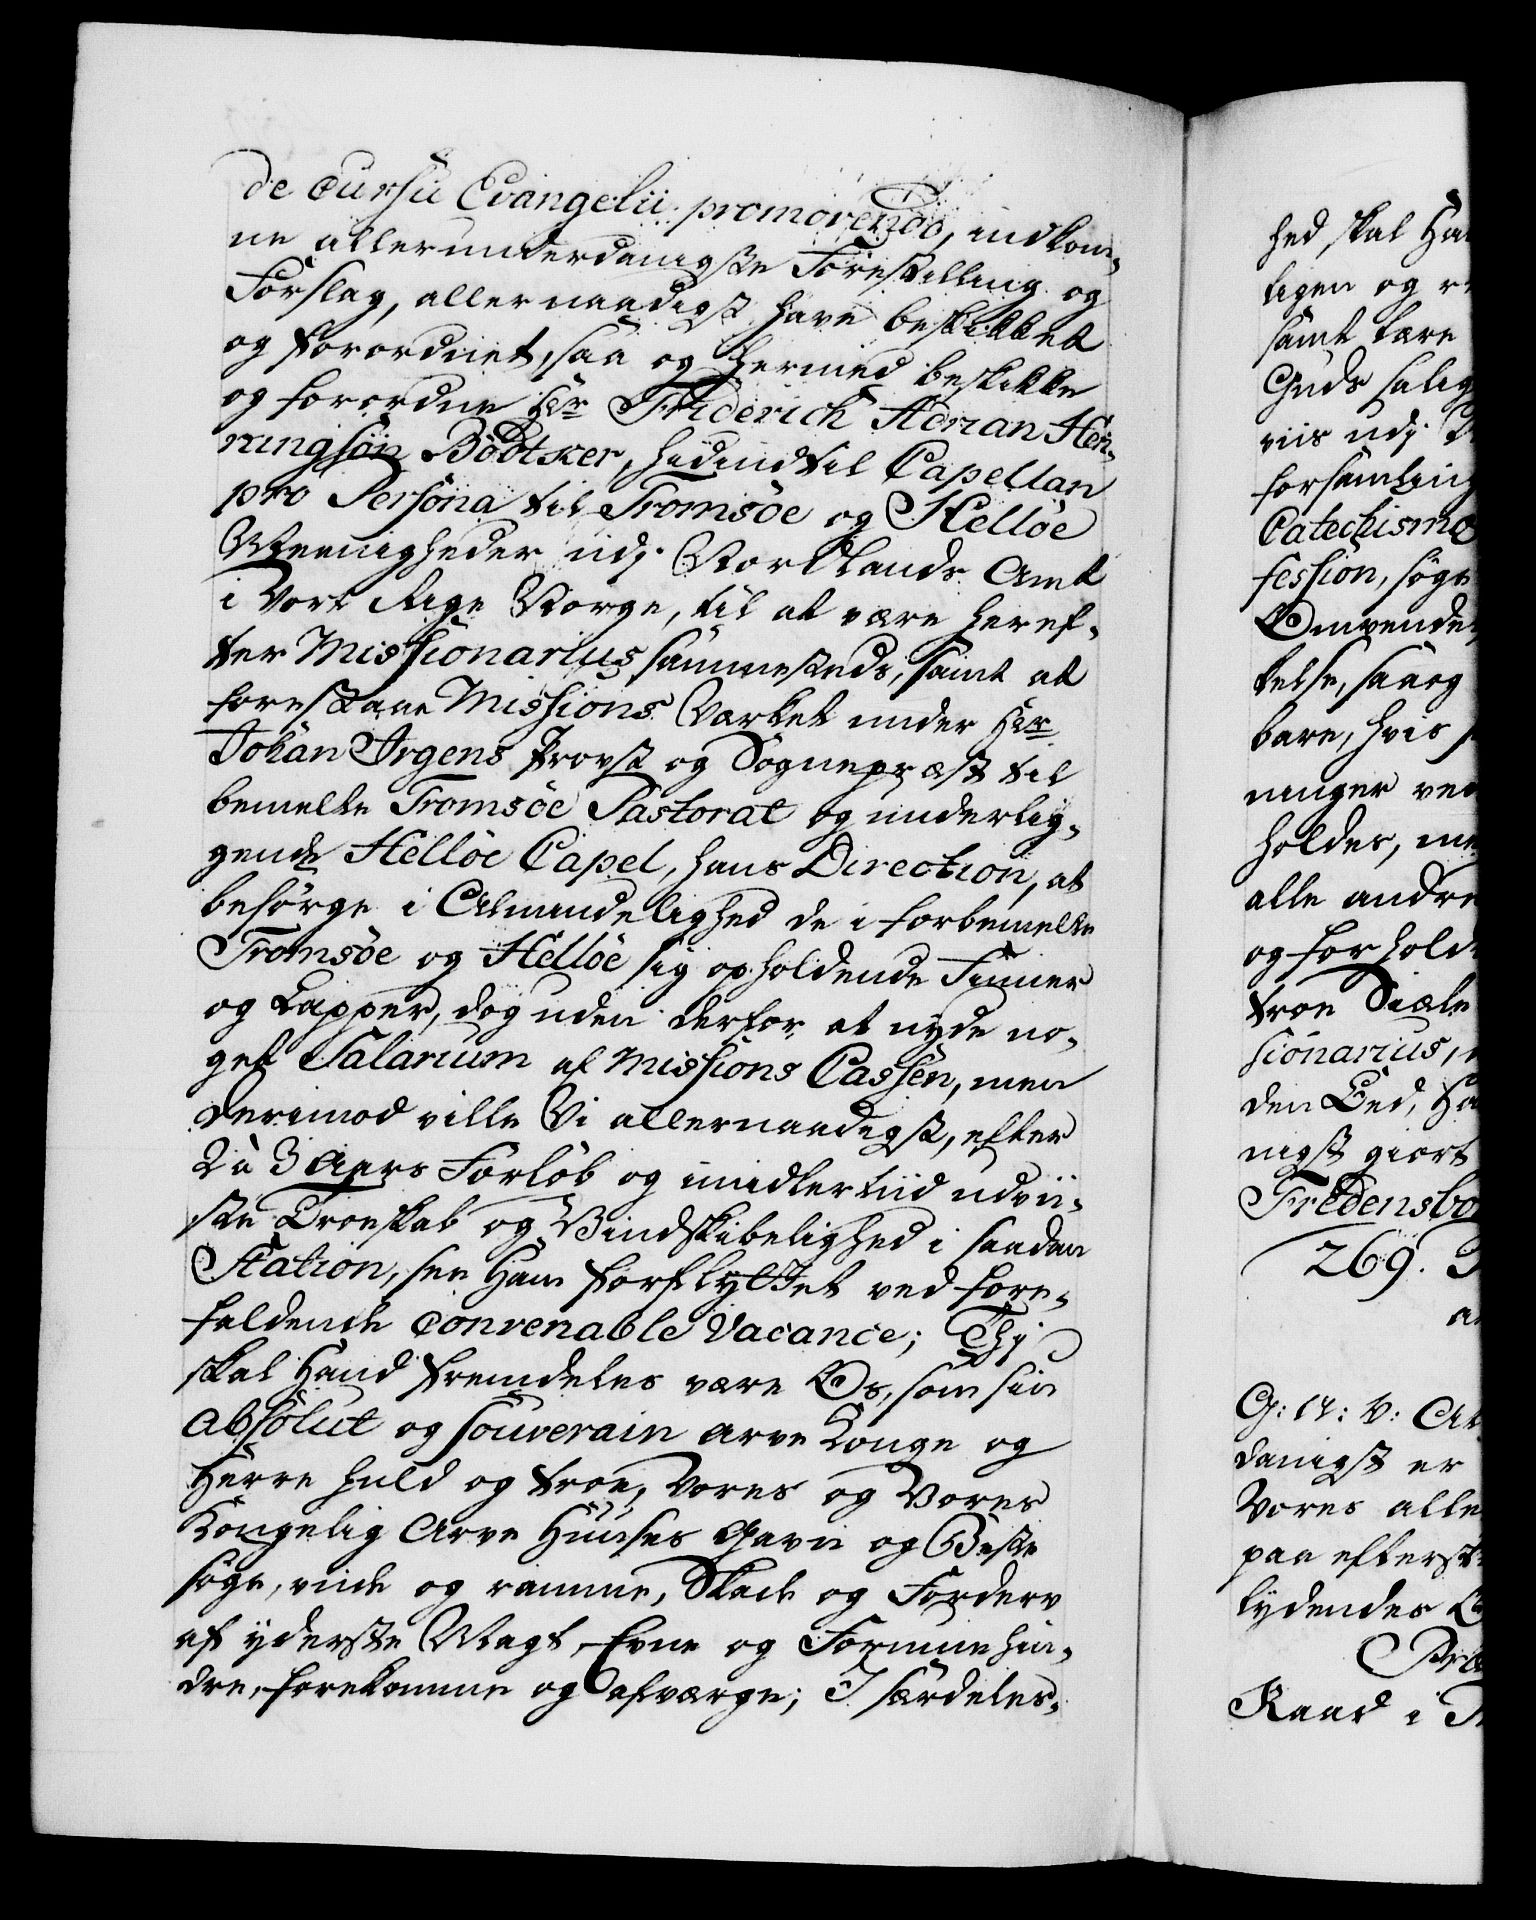 de cursu Evangelii promovendo, indkom-
ne allerunderdanigste Forestilling og
Forslag, allernaadigst have beskikket
og forordnet, saa og hermed beskikke
og forordne Hr Friderich Adrian Hen-
ningsøn Bödtker, hidindtil Capellan
pro Persona til Tromsöe og Hellöe
Meenigheder udj Nordlands Amt
i Vort Rige Norge, til at være heref-
ter Missionarius sammesteds, samt at
forestaae Missions Værket under Hr
Johan Irgens Provst og Sognepræst til
bemelte Tromsöe Pastorat og underlig-
gende Hellöe Capel, hans Direction, at
besørge i Almindelighed de i forbemelte
Tromsöe og Hellöe sig opholdende Finner
og Lapper, dog uden derfor at nyde no-
get Salarium af Missions Cassen, men
derimod ville Vi allernaadigst, efter
2 à 3 Aars Forløb og imidlertiid udvii-
ste Troeskab og Vindskibelighed i saadan
Station, see Ham forflyttet ved fore-
faldende convenable Vacance; Thj
skal Hand fremdeles være Os, som sin
absolut og souverain Arve Konge og
Herre huld og troe, Vores og Vores
Kongelig Arve Huuses Gavn og Beste
søge, viide og ramme, Skade og Forderv
af yderste Magt, Evne og Formue hin-
dre, forekomme og afværge; I særdeles-
hed skal Ha
ligen og r
samt lære
Guds salig
viis udj
forsamling
Catechismo
fession, søge
Omvende
kelse, saa og
bare, hvis
ninger ve
holdes, me
alle andre
og forhold
troe Siæle
sionarius,
den Eed, Ha
nigst giort
Fredensbo
269.
G: A: V: At
danigst er
Vores alle
paa efterst
lydendes
Raad i